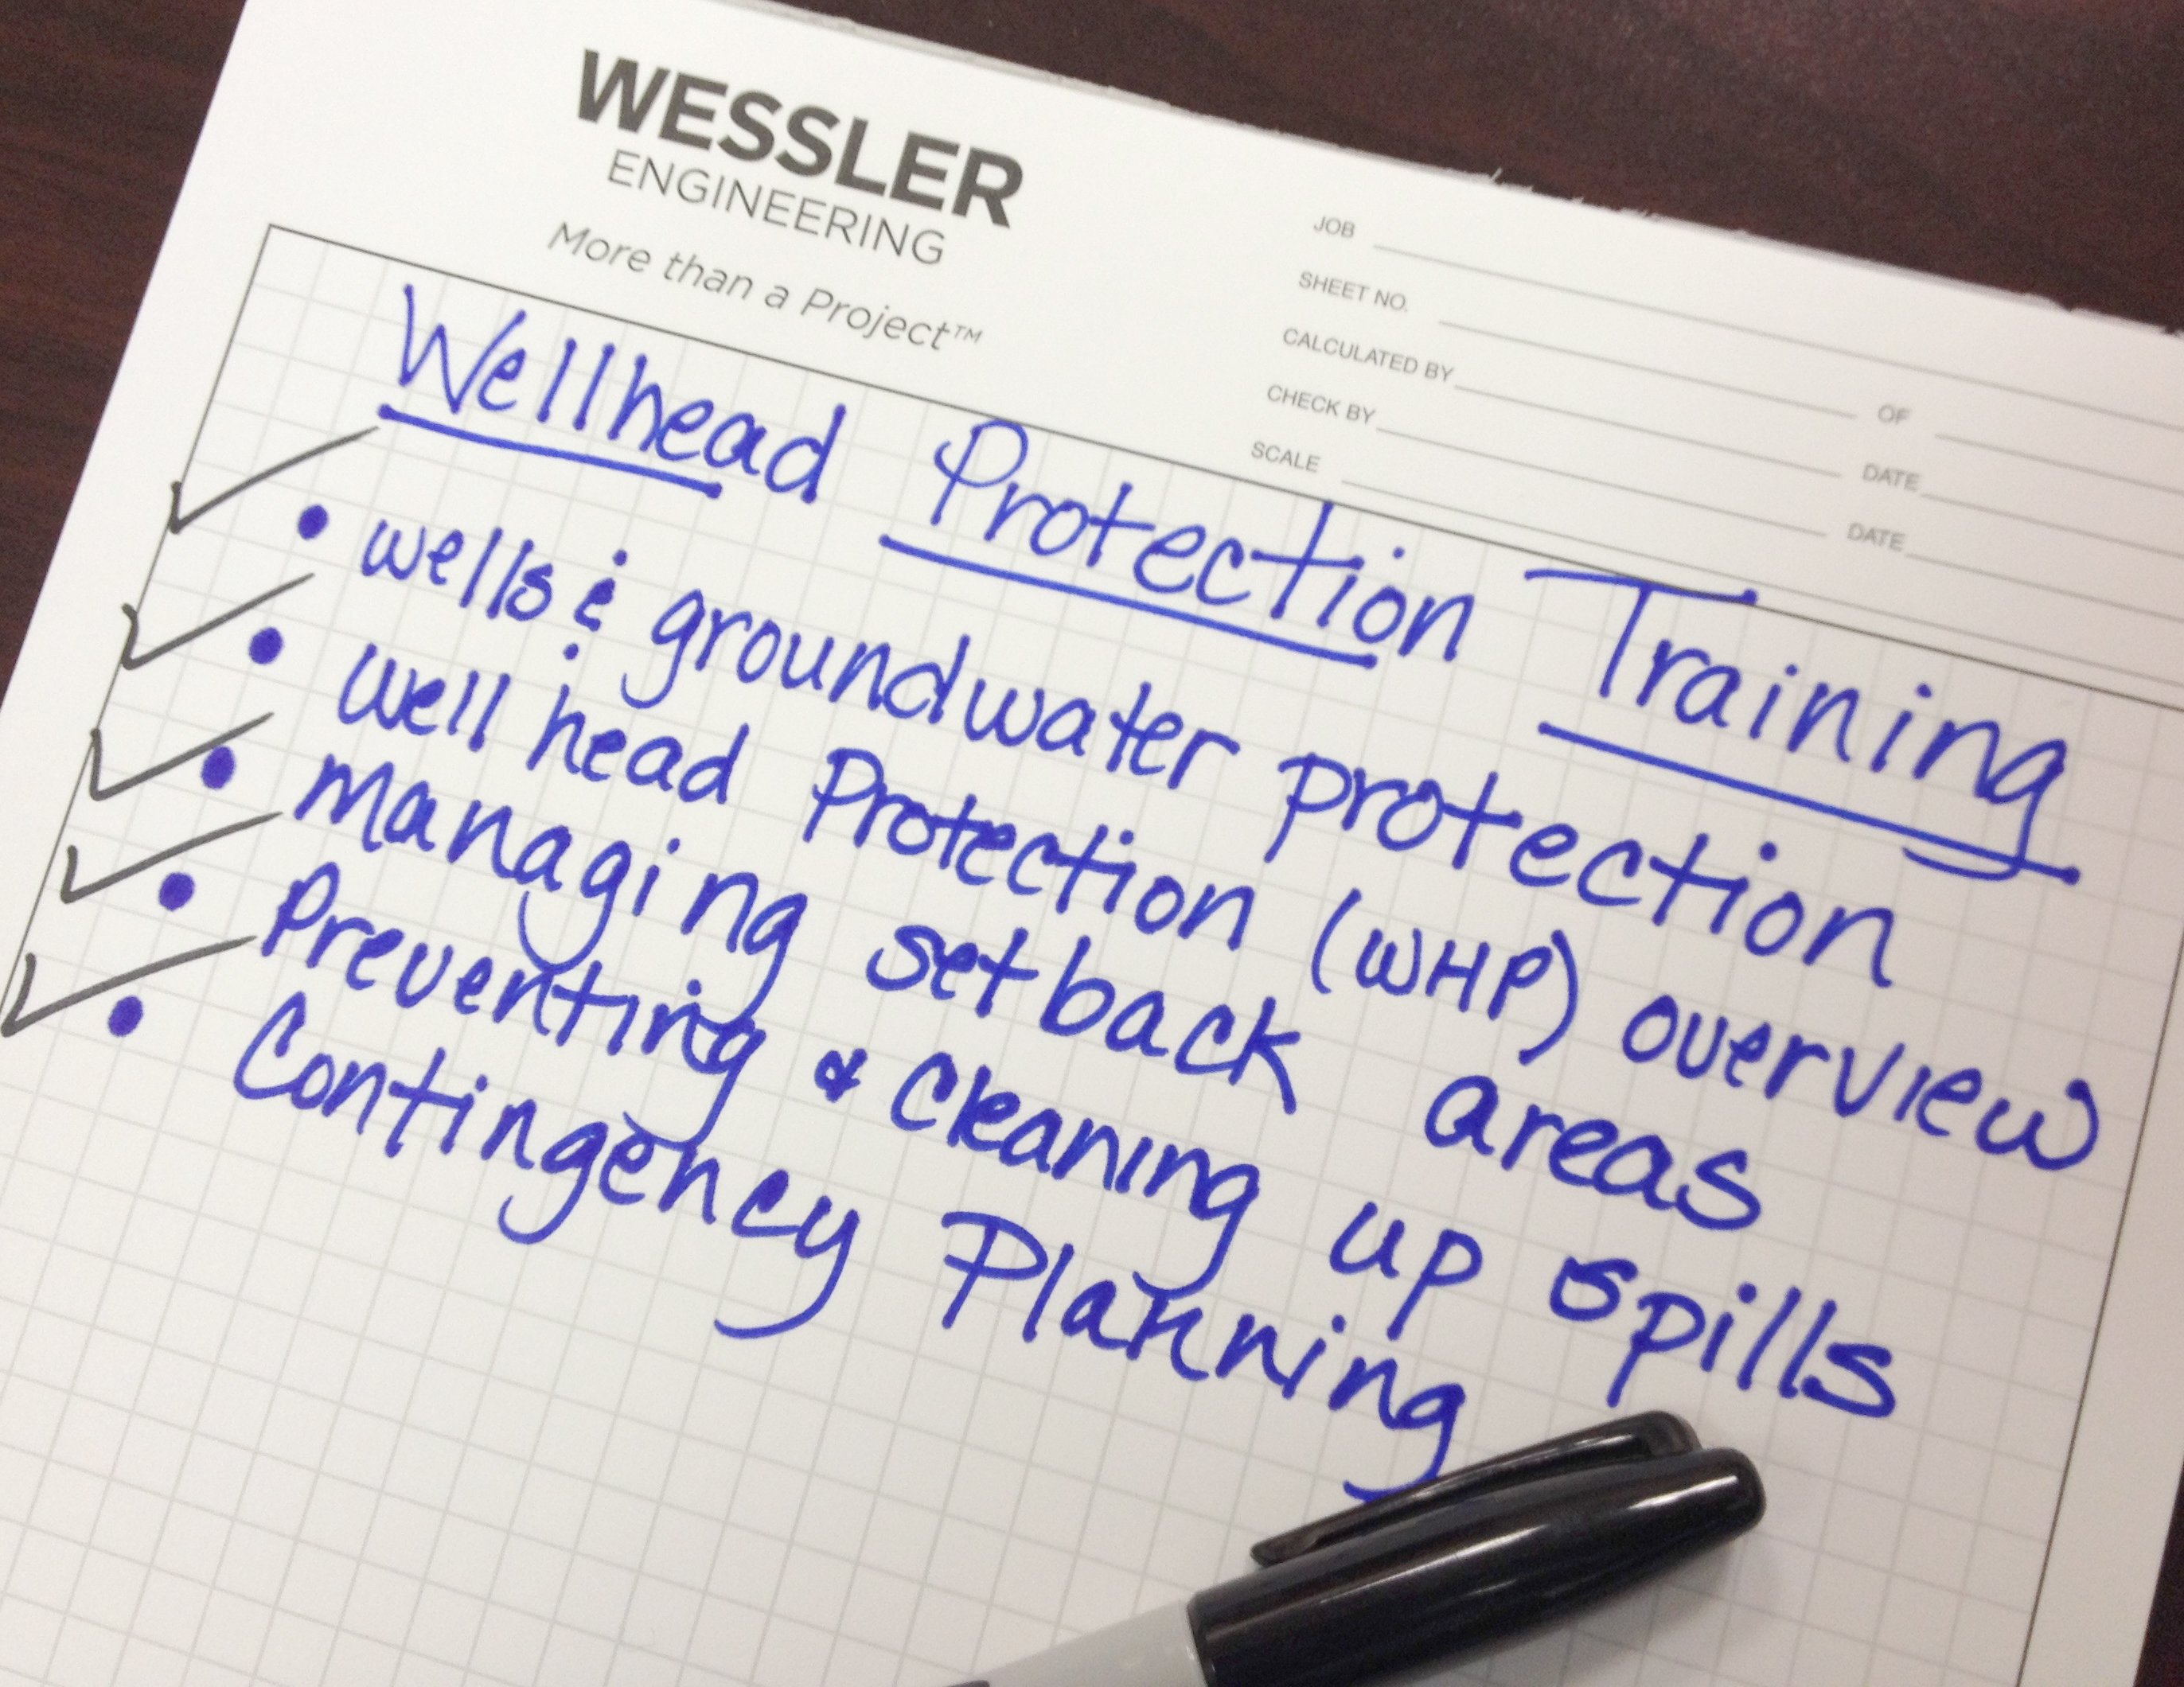 WESSLER
ENGINEERING
More than a Project™
JOB
SHEET NO. OF
CALCULATED BY DATE
CHECK BY DATE
SCALE
Wellhead Protection Training
• wells & groundwater protection
• well head Protection (WHP) overview
• managing setback areas
• Preventing & Cleaning up spills
• Contingency Planning